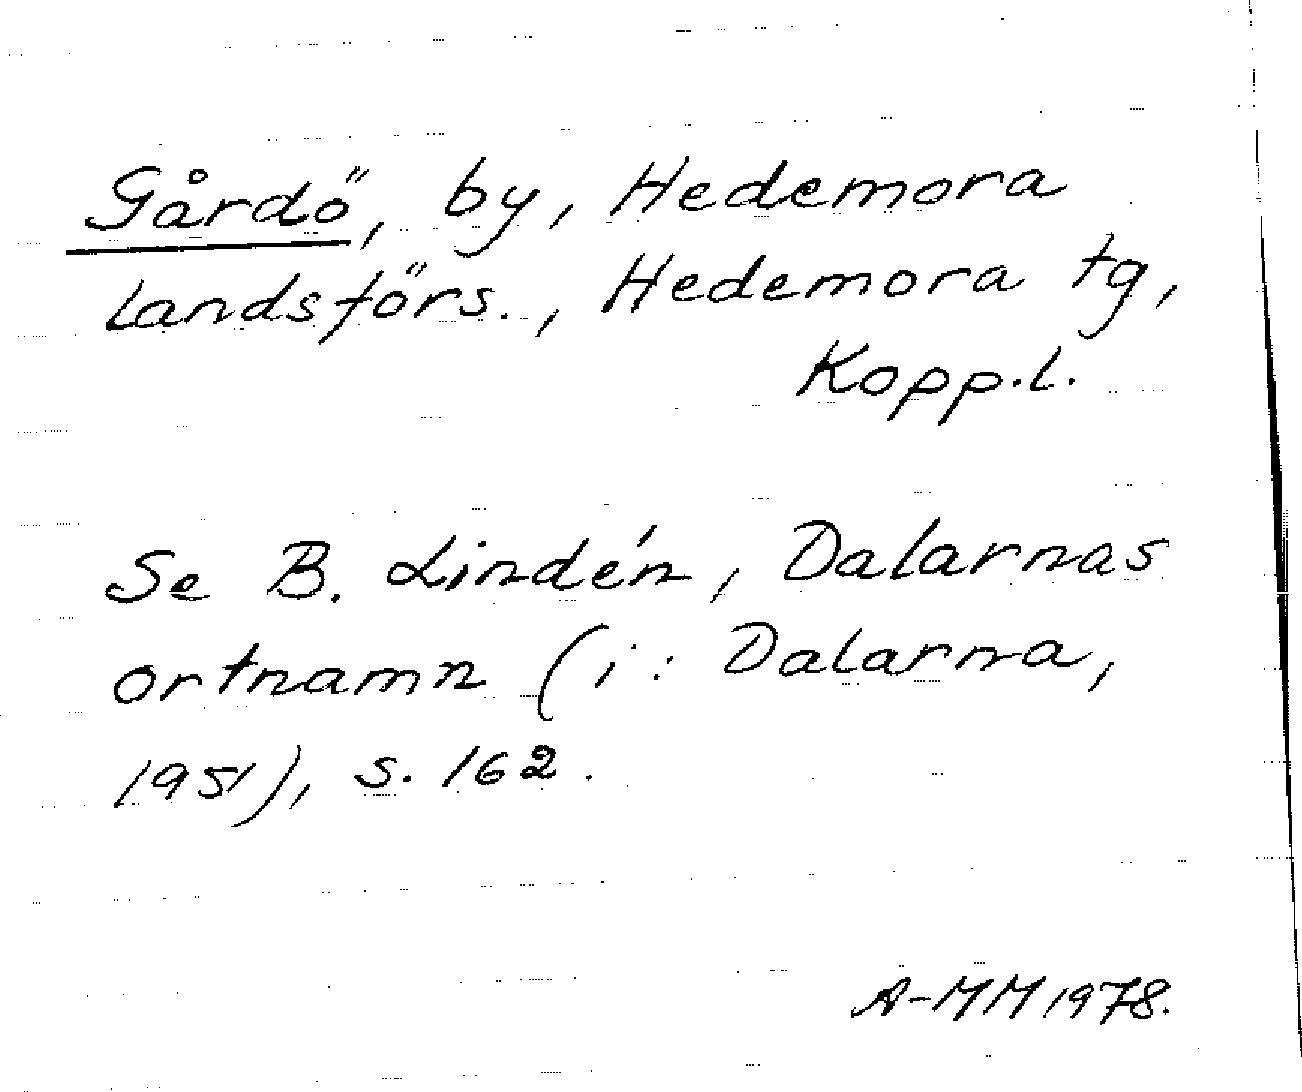 Gårdö, by, Hedemora
Landsförs., Hedemora tg,
Kopp.l.
Se B. Lindén, Dalarnas
ortnamn (i: Dalarna,
1951), s. 162.
A-MM 1978.